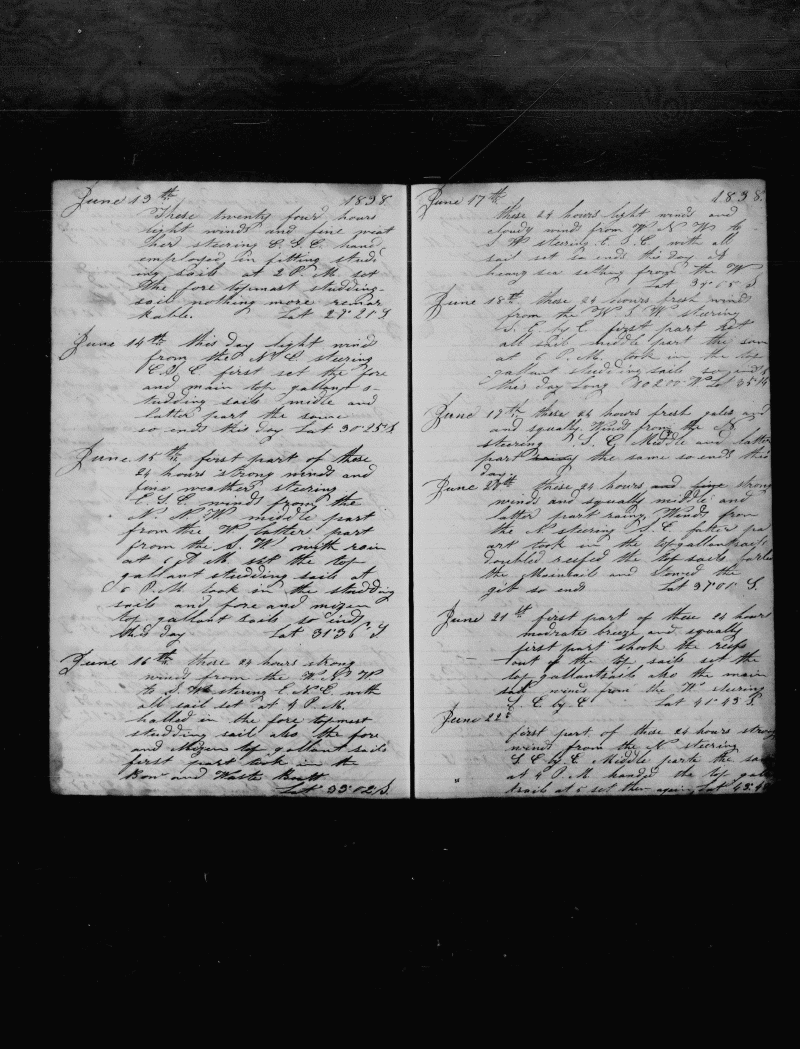 June 13th 1838
These twenty four hours
light winds and fine weat
her steering E.S.E. hands
employed in fitting studd
ing sails at 2 P.M. set
the fore topmast studding
sail nothing more remar
kable. Lat 27°21 S
June 14th this day light winds
from the N. E. steering
E.S.E. first set the fore
and main top gallant s-
tudding sails middle and
latter part the same
so ends this day Lat 30°25 S
June 15th first part of these
24 hours strong winds and
fine weather steering
E.S.E. winds from the
N. N. W. middle part
from the W. latter part
from the S. W. with rain
at 6 P M. set the top
gallant studding sails at
6 P.M. took in the studding
sails and fore and mizen
top gallant sails so ends
this day Lat 31°36 S
June 16th these 24 hours strong
winds from the W. N. W
to S. W steering E.N.E. with
all sail set at 4 P.M.
halled in the fore topmost
studding sail also the fore
and Mizen top gallant sails
first part took in the
Bow and Waste Boats
Lat 33°02 S.
June 17th 1838
these 24 hours light winds and
cloudy winds from W N W to
S W steering E. S.E. with all
sail set so ends this day A
heavy sea setting from the W
Lat S
June 18th these 24 hours fresh winds
from the W S W steering
S. E by E first part set
all sail middle part the same
at 6 P.M. took in the top
gallant studding sails so ends
this day Long W Lat
June 19th these 24 hours fresh gales and
and squally Wind from the N.
steering S. E Middle and latter
part the same so ends this
day
June 20th these 24 hours and fine strong
winds and squally middle and
latter part rainy Winds from
the N steering S.E later pa
art took in the top gallantsails
doubled reefed the top sails furled
the Mainsail and stowed the
gib so ends Lat 37°01 S.
June 21st first part of these 24 hour
modrate breeze and squally
first part shook the reefs
out of the top sails set the
top gallantsails also the main
sail winds from the W steering
S. E by E Lat 41°43 S.
June 22d
first part of these 24 hours strong
winds from the N steering
S E by E Middle part the sa
at 4 P.M. handed the top gall
tsails at 5 set them again Lat